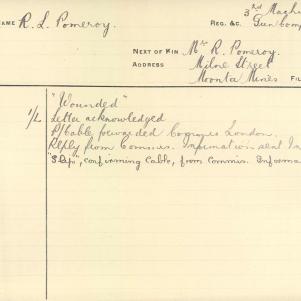 NAME R. L. Pomeroy.
REG. &C. 3rd Machi
Gun Comp
NEXT OF KIN Mrs R. Pomeroy.
ADDRESS Milne Street
Moonta Mines FIL
"Wounded"
1/L Letter acknowledged
P/Cable forwarded Cogryes London.
Reply from Commis. Information sent In
"Slip", confirming Cable, from Commis. Informa